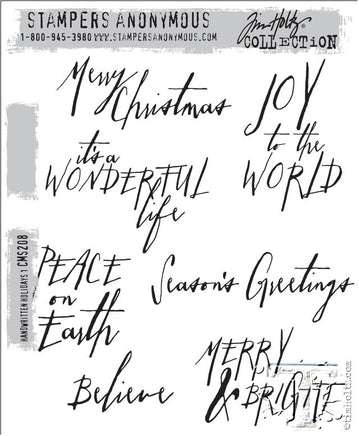 STAMPERS ANONYMOUS
1-800-945-3980 WWW.STAMPERSANONYMOUS.COM
Tim Holtz
COLLECTION
Merry
Christmas
JOY
to the
WORLD
it's a
WONDERFUL
life
HANDWRITTEN HOLIDAYS 1 CMS208
PEACE
on
Earth
Season's Greetings
Believe
MERRY
& BRIGHT
©timholtz.com